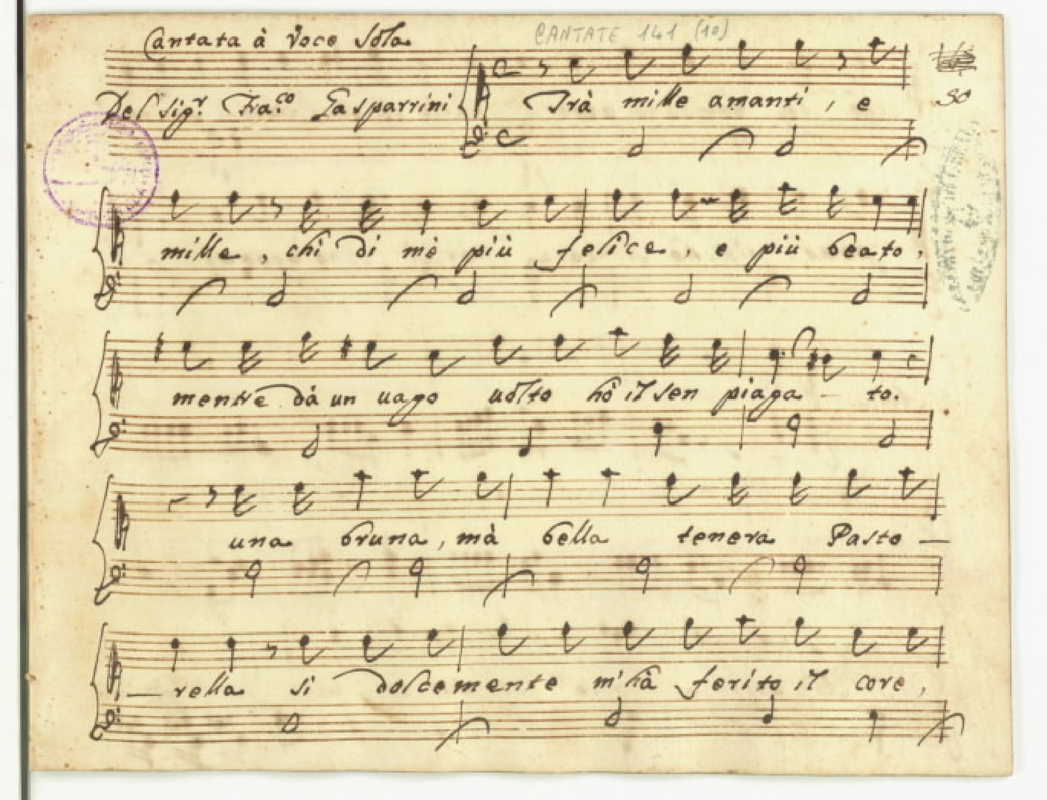 Cantata à Voce Sola
CANTATE 141 (10)
30
Del Sig.r Fra.co Gasparrini
Trà mille amanti, e
mille, chi di mè più felice, e più beato,
mentre dà un uago uolto hò il sen piaga - to.
una bruna, mà bella tenera Pasto -
- rella si dolcemente m'hà ferito il core,